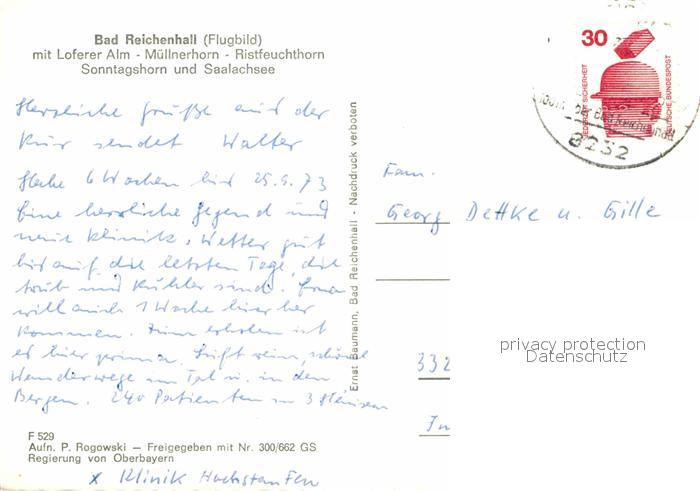 Bad Reichenhall (Flugbild)
mit Loferer Alm - Müllnerhorn - Ristfeuchthorn
Sonntagshorn und Saalachsee
Herzliche Grüße aus der
Kur sendet Walter
Habe 6 Wochen bis 25.9.73
Eine herrliche Gegend und
neue Klinik. Wetter gut
bis auf die letzten Tage, die
trüb und kühler sind.
will auch 1 Woche hier her
kommen. Zum erholen ist
es hier prima. Luft rein, schöne
Wanderwege im Tal u. in den
Bergen. 240 Patienten in 3 Häusern
F 529
Aufn. P. Rogowski — Freigegeben mit Nr. 300/662 GS
Regierung von Oberbayern
x Klinik Hochstaufen
Ernst Baumann, Bad Reichenhall - Nachdruck verboten
30
JEDERZEIT SICHERHEIT
DEUTSCHE BUNDESPOST
8232
Fam.
Georg Dettke u. Gille
332
privacy protection
Datenschutz